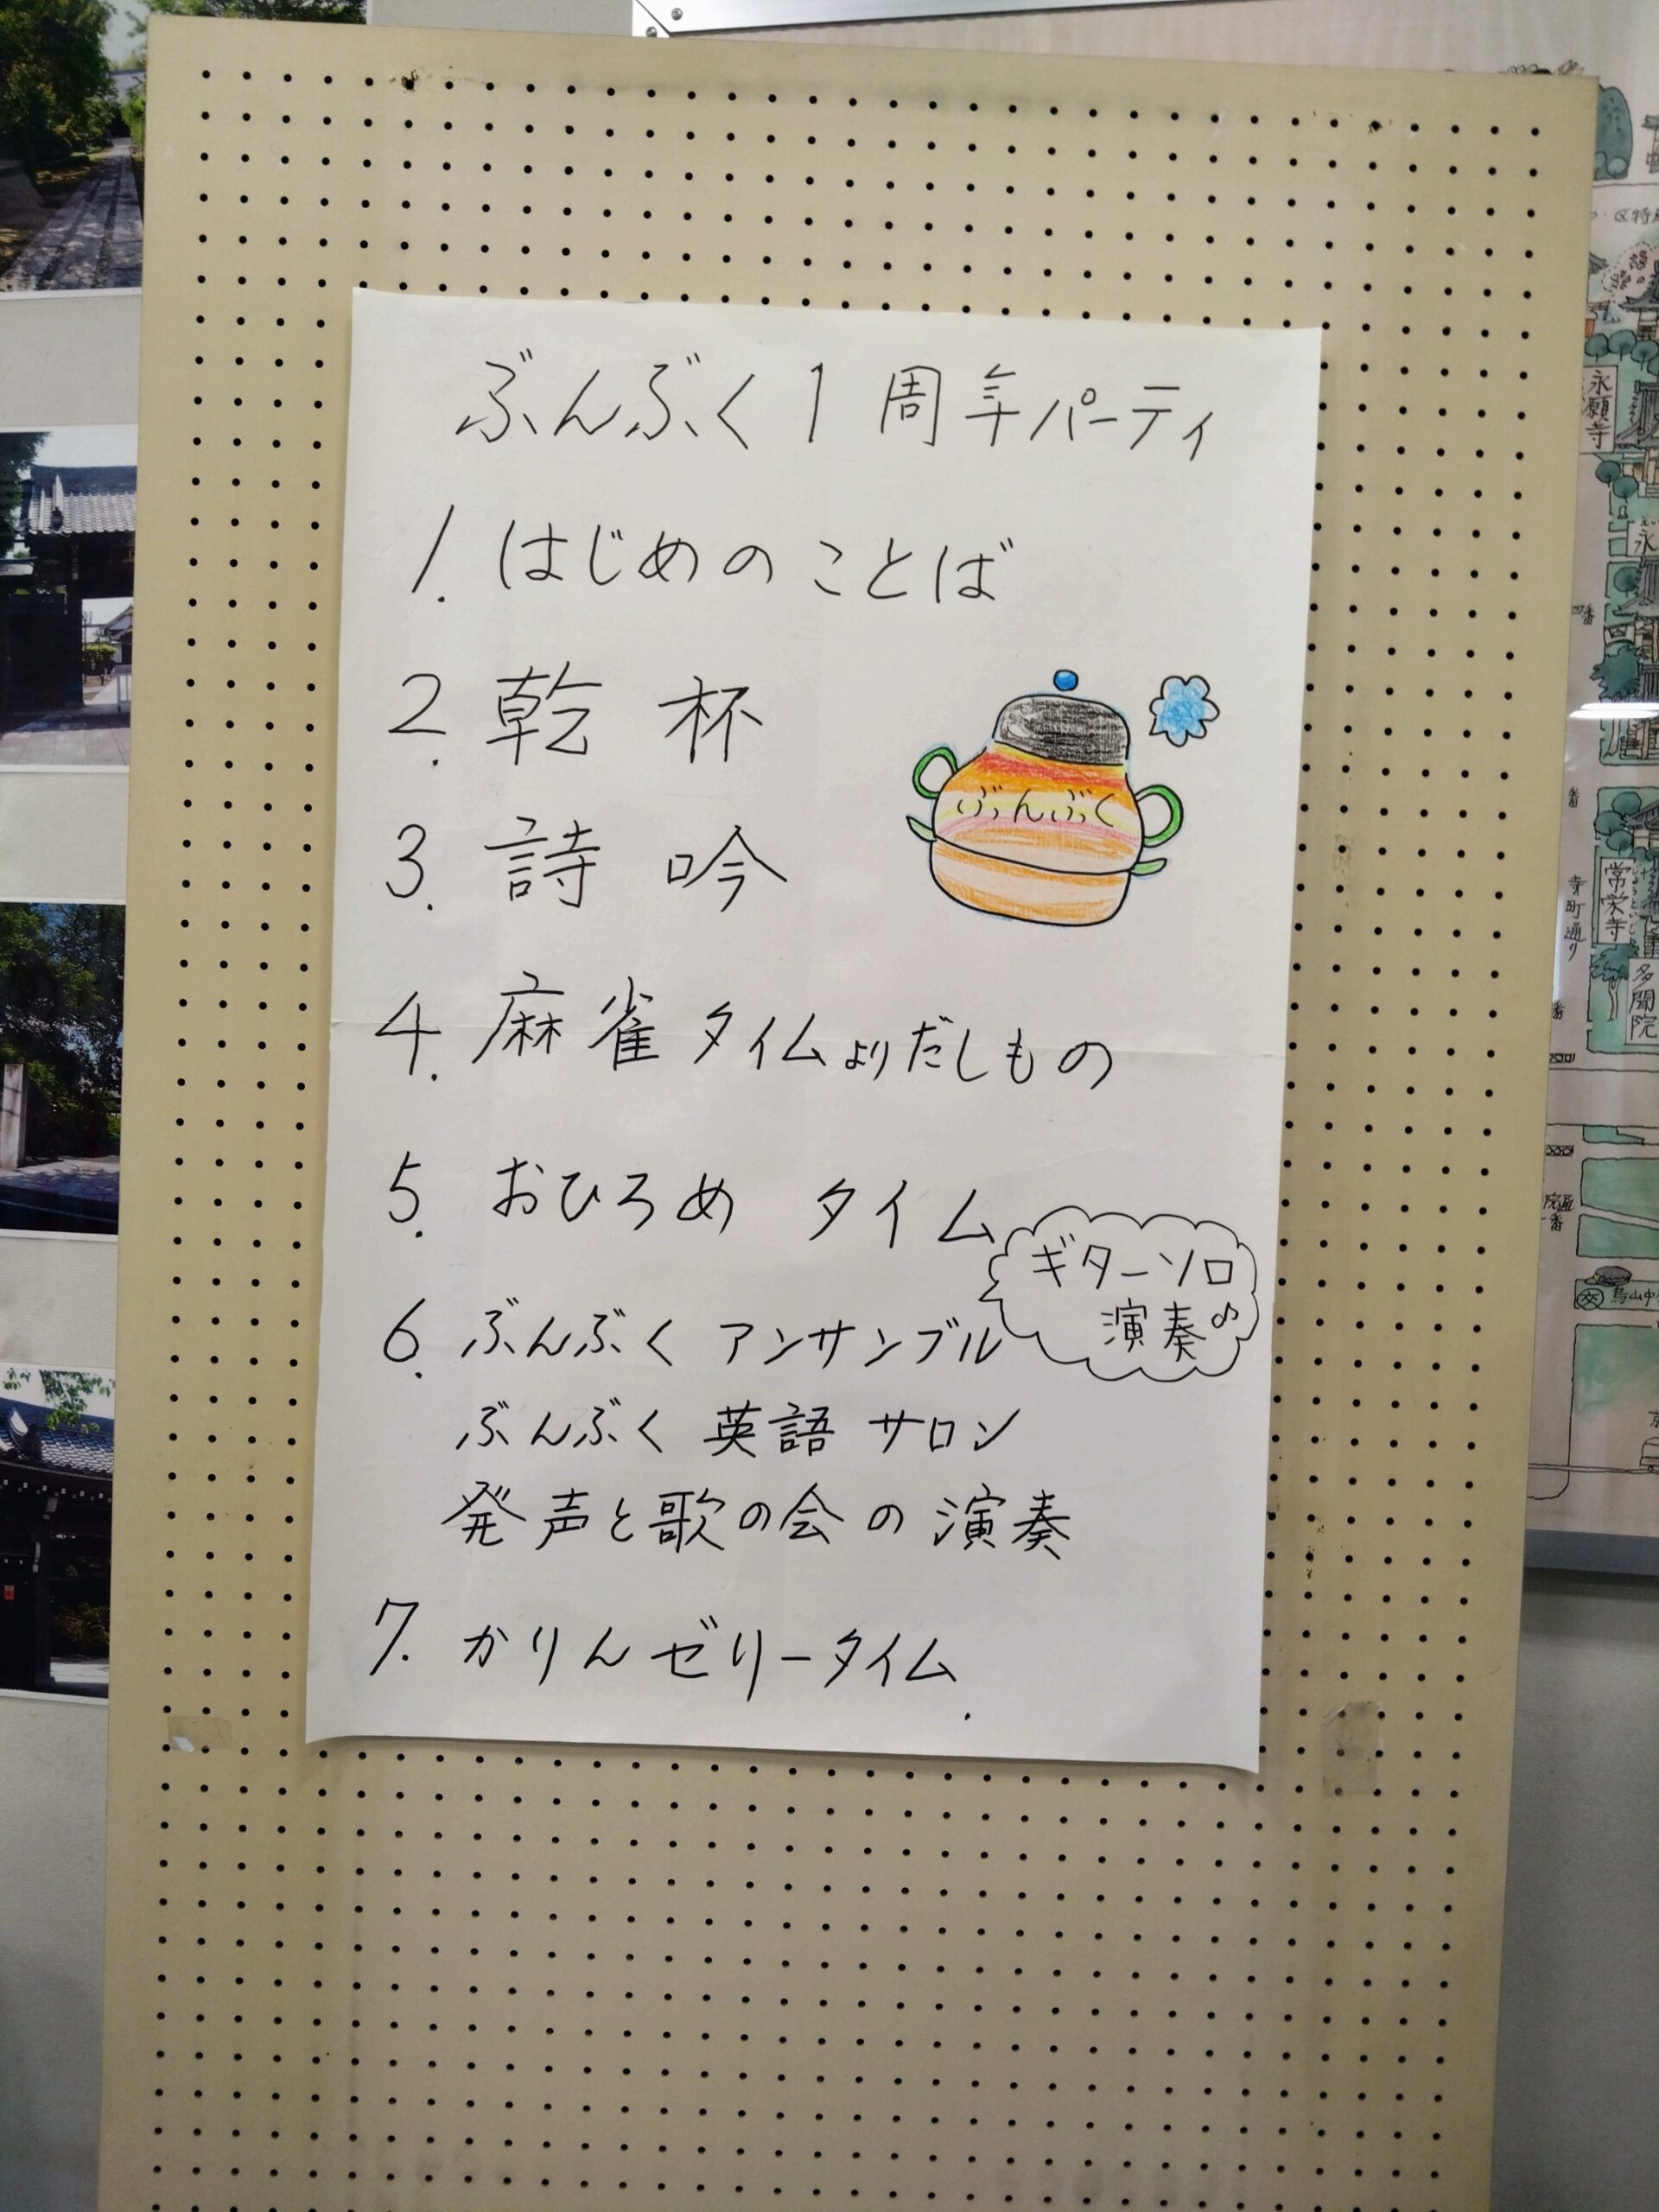 ぶんぶく1周年パーティ
1. はじめのことば
2. 乾杯
3. 詩吟
ぶんぶく
4. 麻雀タイムよりだしもの
5. おひろめ タイム
ギターソロ
演奏♪
6. ぶんぶく アンサンブル
ぶんぶく 英語 サロン
発声と歌の会の演奏
7. かりんゼリータイム.
永願寺
常栄寺
寺町通り
多聞院